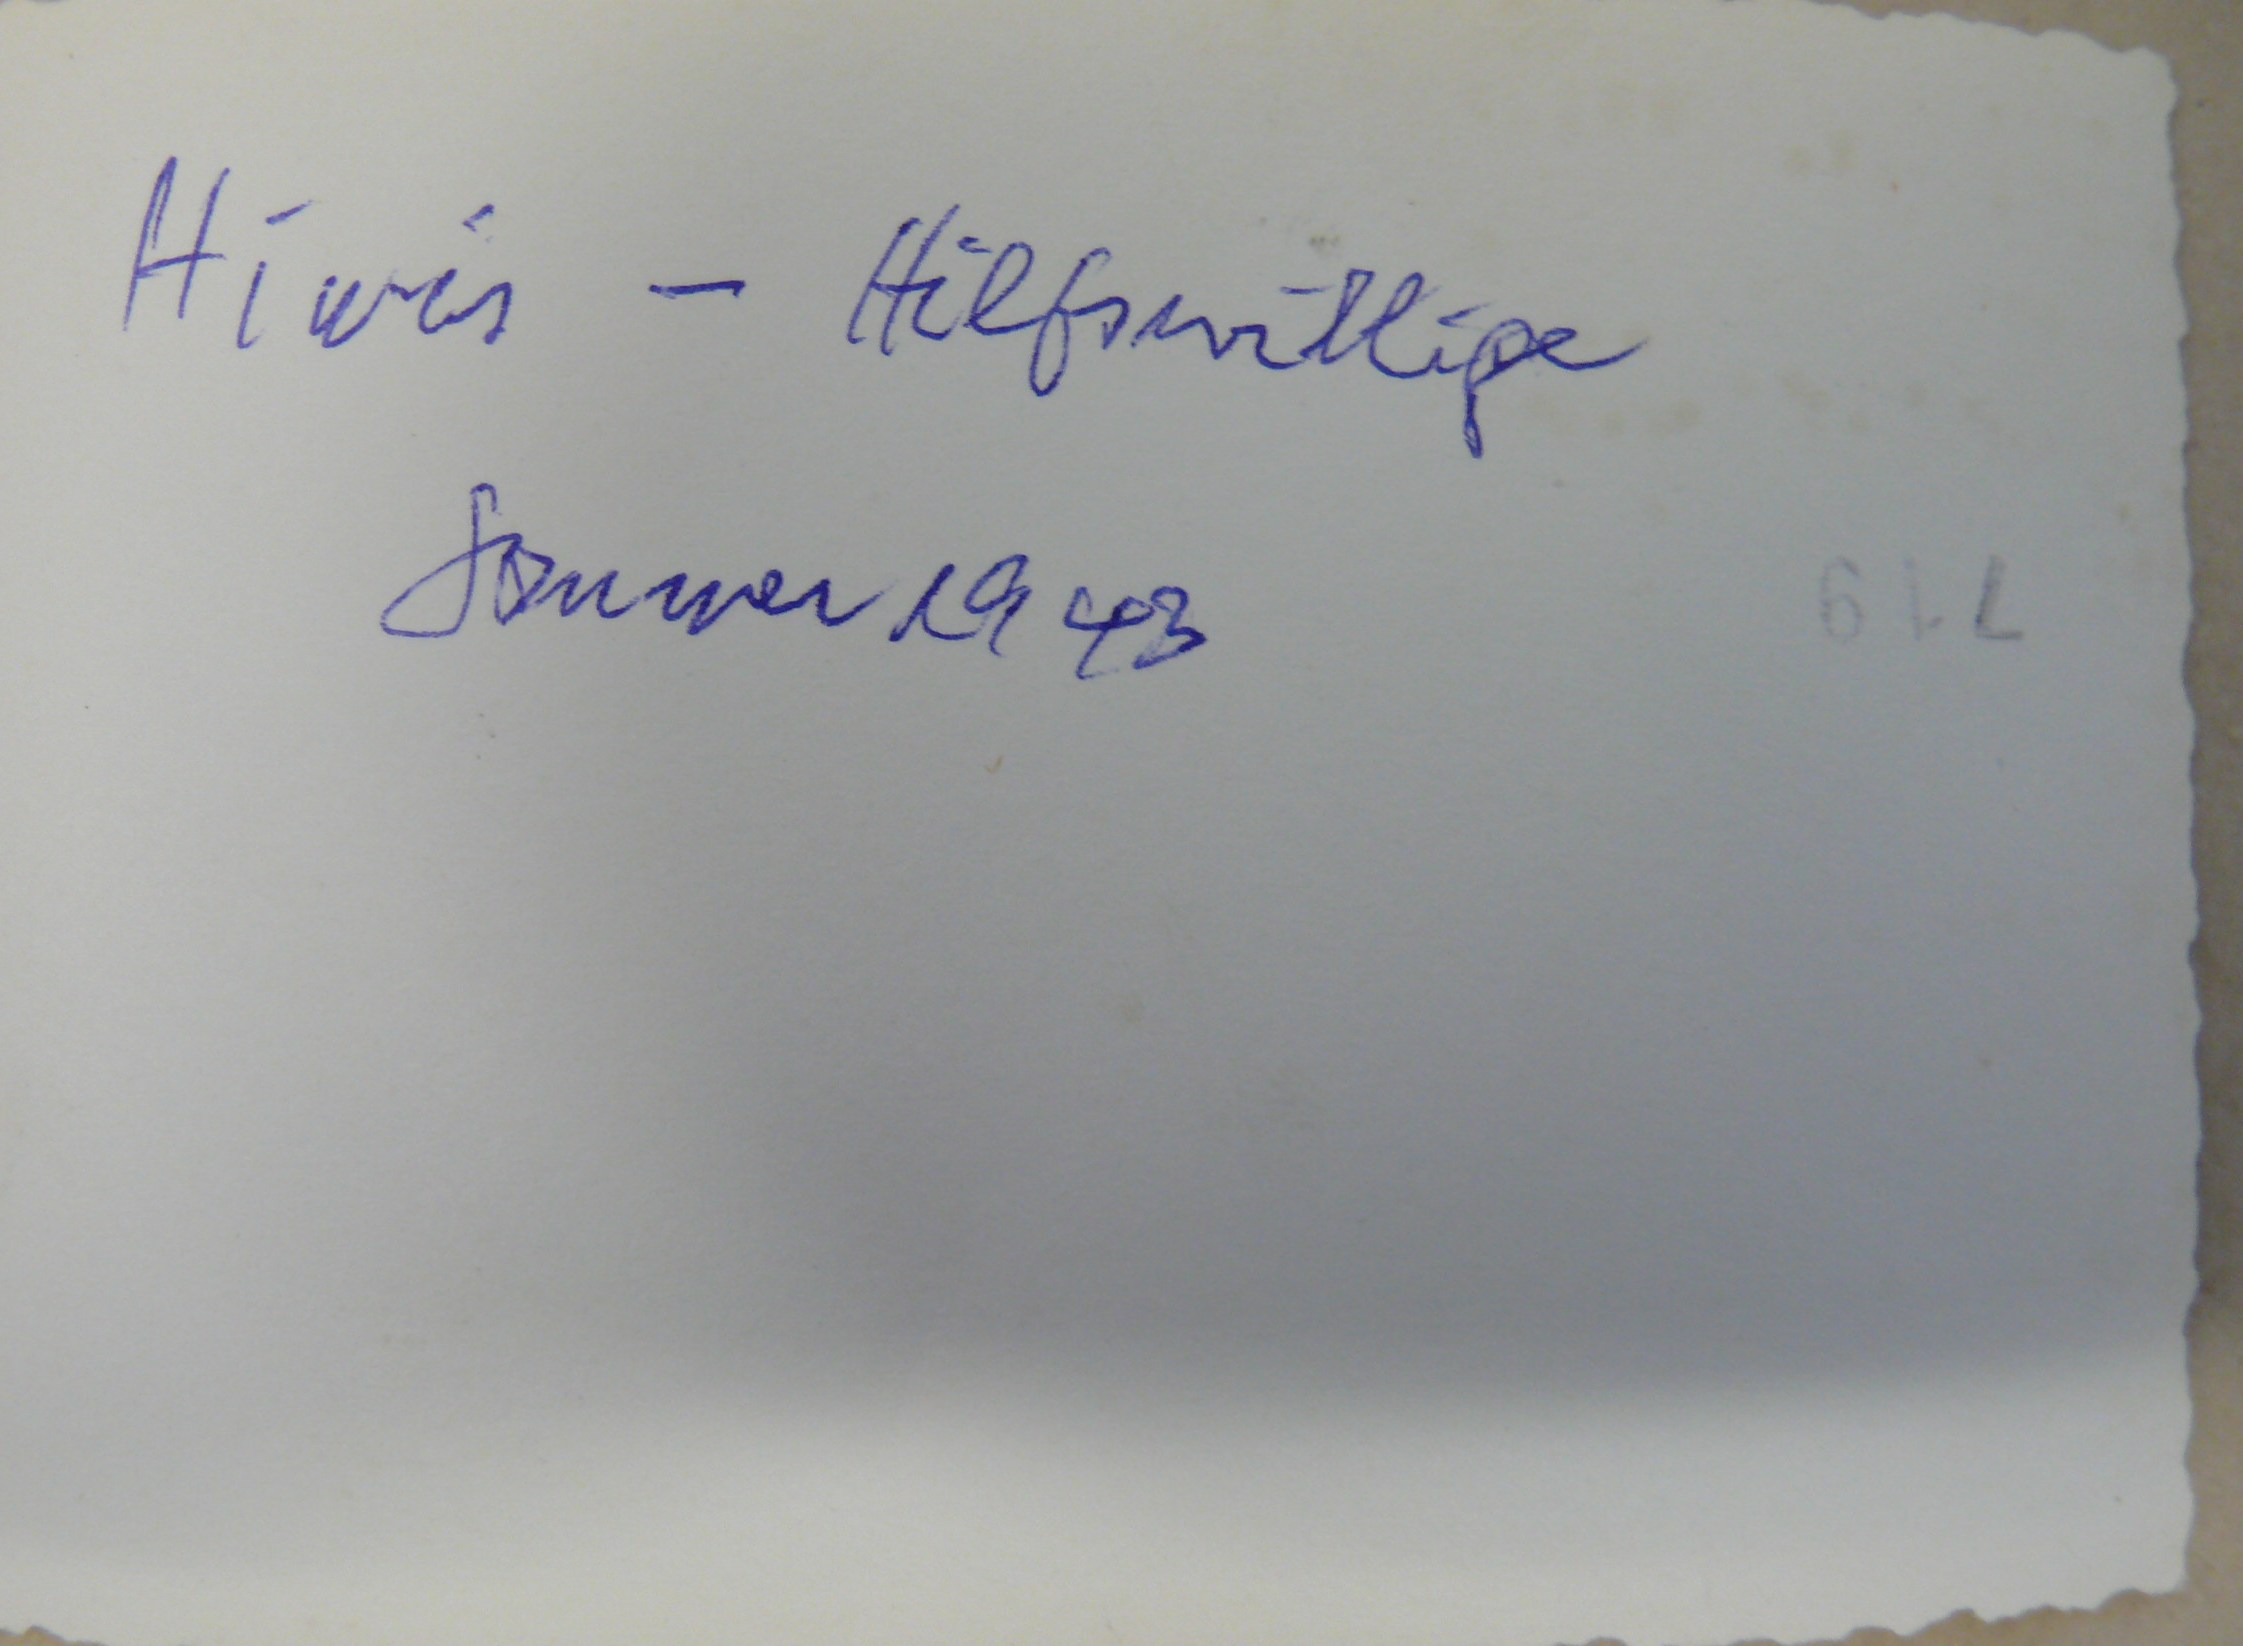 Hiwis - Hilfswillige
Sommer 1943
719